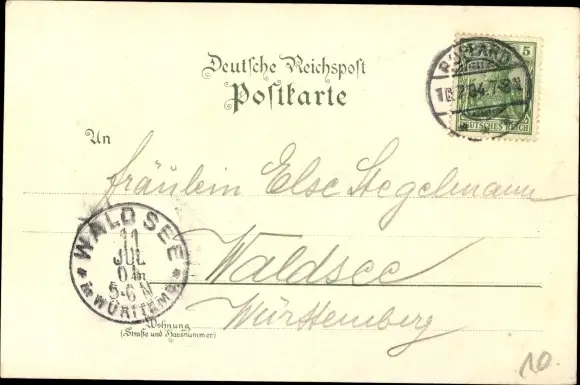 Deutsche Reichspost
Postkarte
5
BOPPARD
10.7.04.7-8N
DEUTSCHES REICH
An
Fräulein Else Stegelmann
Waldsee
Württemberg
WALDSEE
11
JUL
04
5-6N
in WÜRTTEMB.
Wohnung
(Straße und Hausnummer)
10.